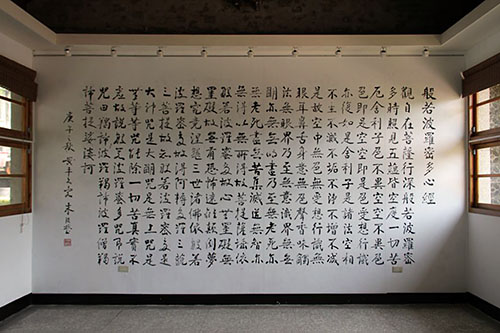 般若波羅蜜多心經
觀自在菩薩行深般若波羅蜜
多時照見五蘊皆空度一切苦
厄舍利子色不異空空不異色
色即是空空即是色受想行識
亦復如是舍利子是諸法空相
不生不滅不垢不淨不增不減
是故空中無色無受想行識無
眼耳鼻舌身意無色聲香味觸
法無眼界乃至無意識界無無
明亦無無明盡乃至無老死亦
無老死盡無苦集滅道無智亦
無得以無所得故菩提薩埵依
般若波羅蜜多故心無罣礙無
罣礙故無有恐怖遠離顛倒夢
想究竟涅槃三世諸佛依般若
波羅蜜多故得阿耨多羅三藐
三菩提故知般若波羅蜜多是
大神咒是大明咒是無上咒是
無等等咒能除一切苦真實不
虛故說般若波羅蜜多咒即說
咒曰羯諦羯諦波羅羯諦波羅僧羯
諦菩提娑婆訶
庚子秋 安平 朱玖瑩